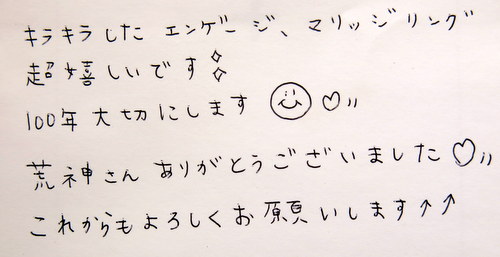 キラキラした エンゲージ、マリッジリング
超嬉しいです✧✧
100年大切にします ☺♡〃
荒神さん ありがとうございました♡〃
これからもよろしくお願いします↑↑